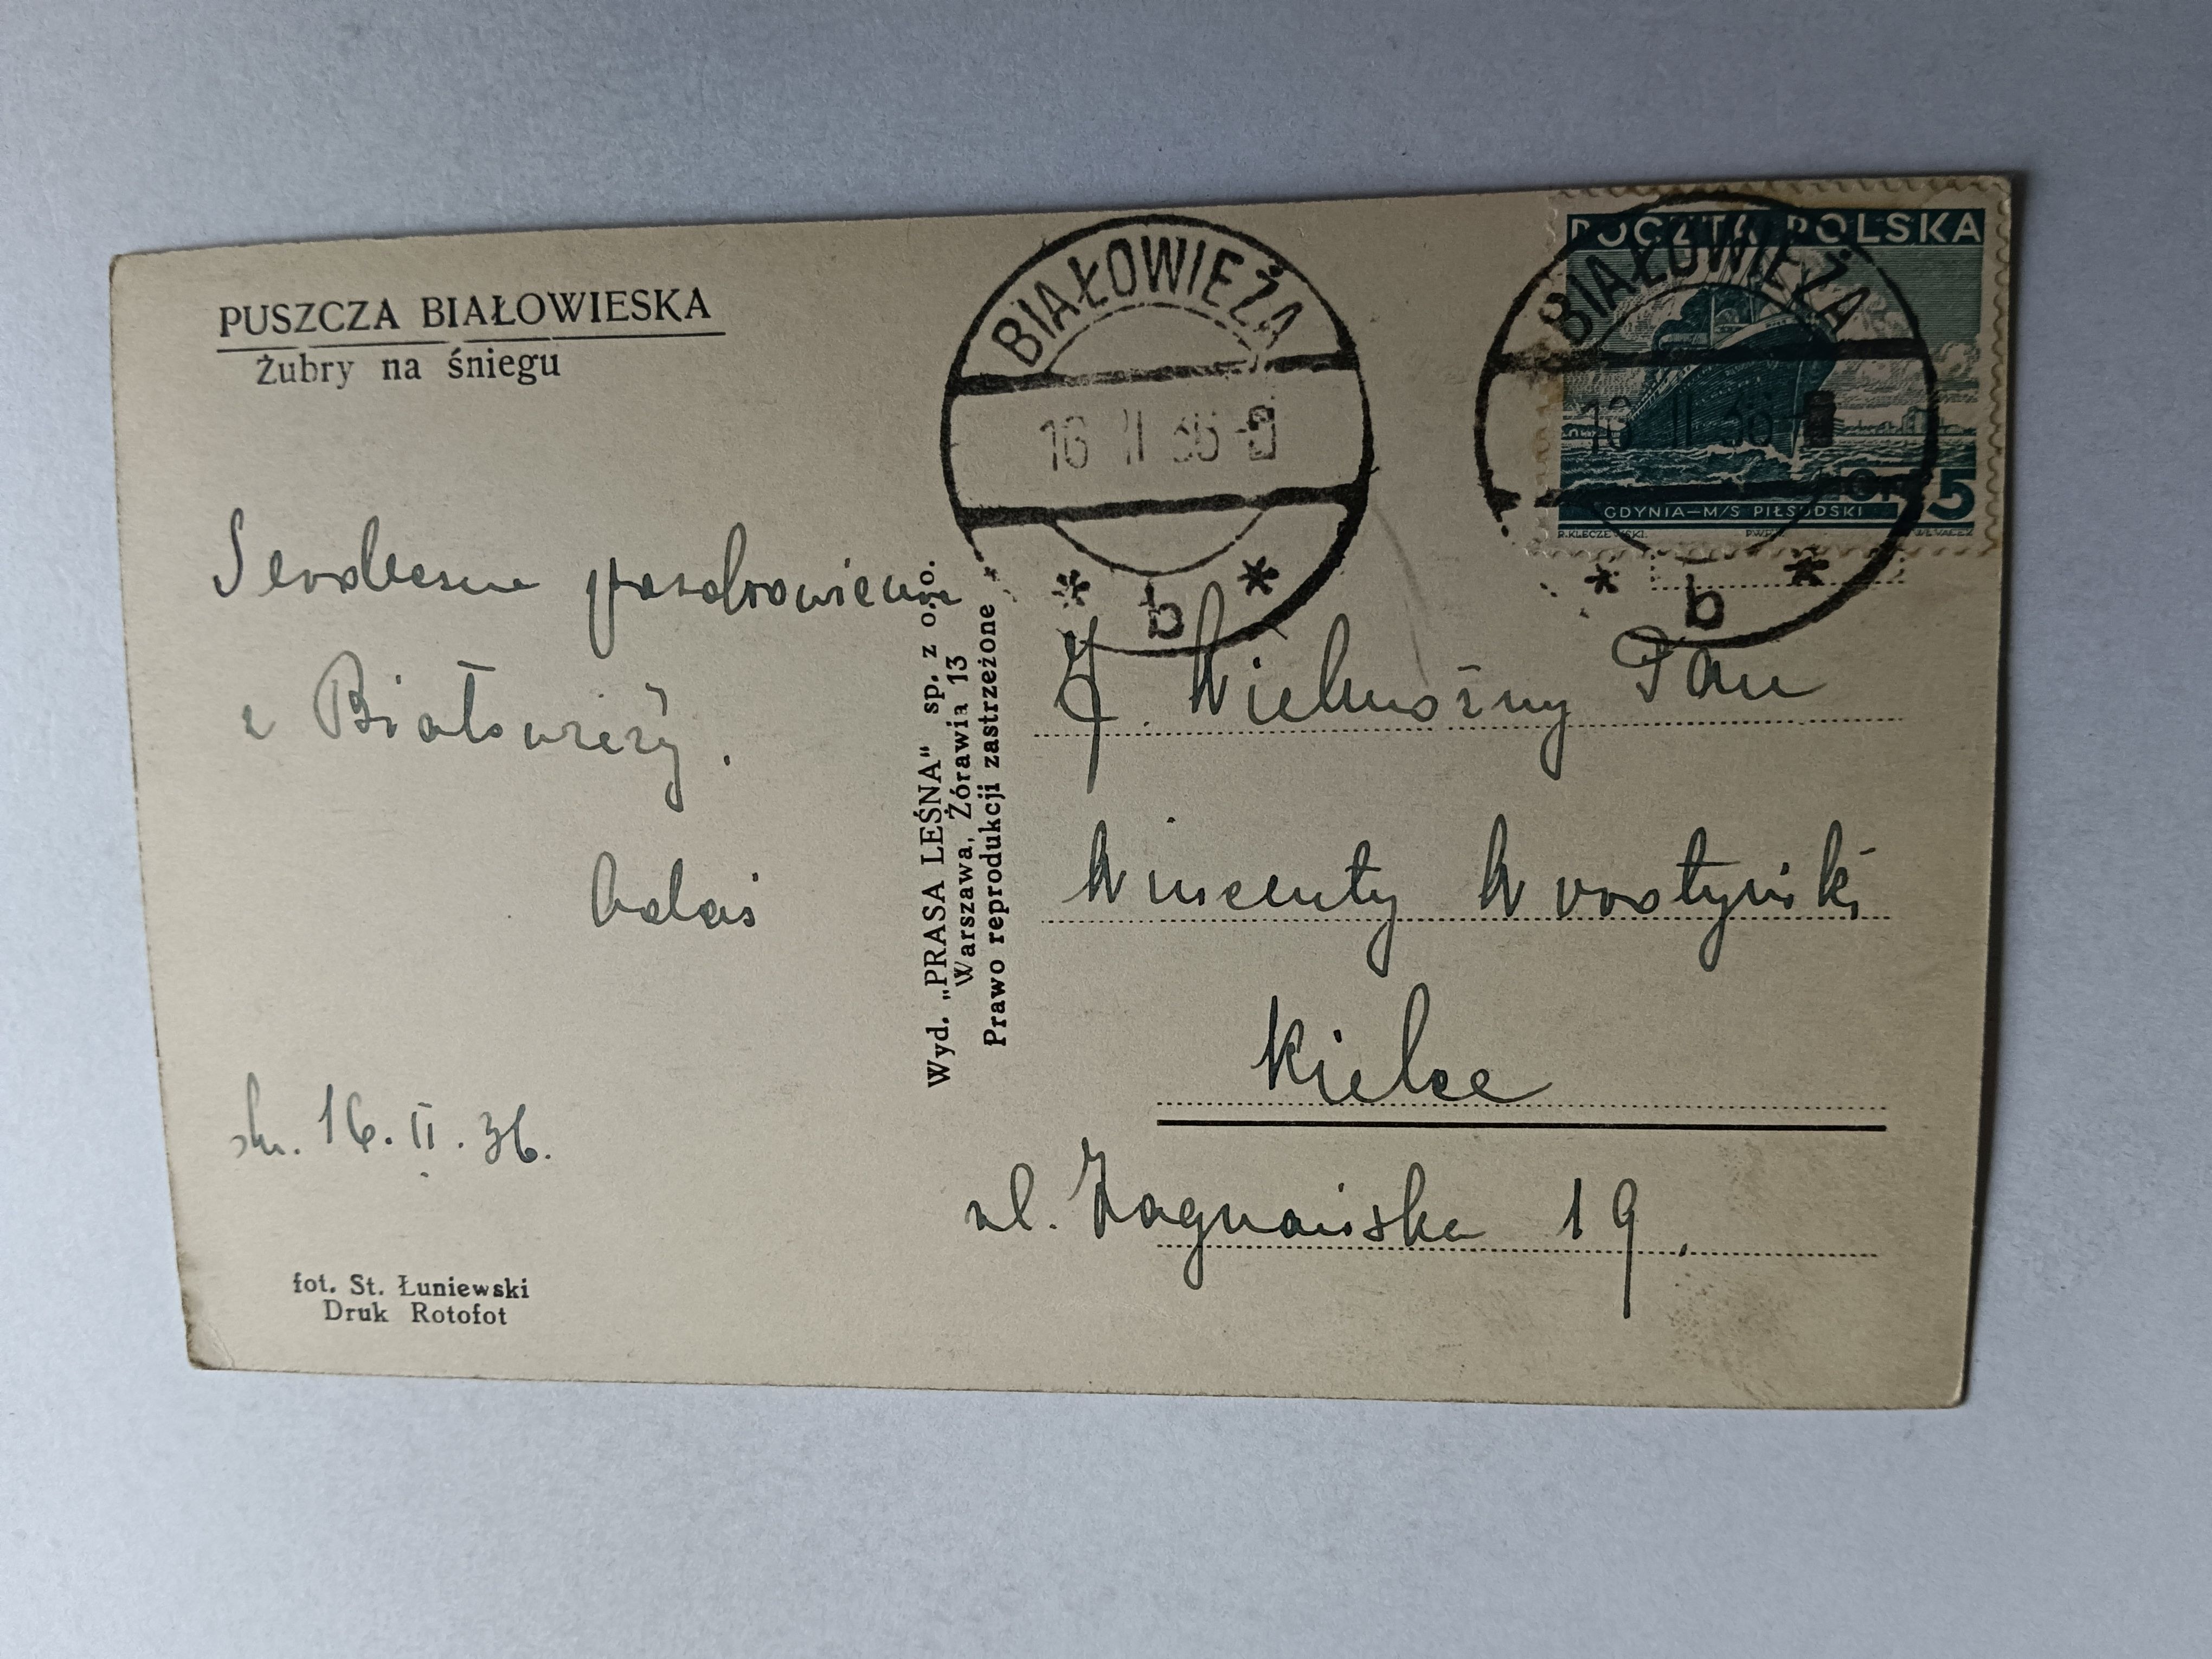 PUSZCZA BIAŁOWIESKA
Żubry na śniegu
Serdeczne pozdrowienia
z Białowieży.
dn. 16.II.36.
fot. St. Łuniewski
Druk Rotofot
Wyd. „PRASA LEŚNA" sp. z o. o.
Warszawa, Żórawia 13
Prawo reprodukcji zastrzeżone
BIAŁOWIEŻA
16 II 36
b
POCZTA POLSKA
BIAŁOWIEŻA
16 II 36
GDYNIA—M/S PIŁSUDSKI
b
J. Wielmożny Pan
Wincenty
Kielce
ul. Zagnańska 19.